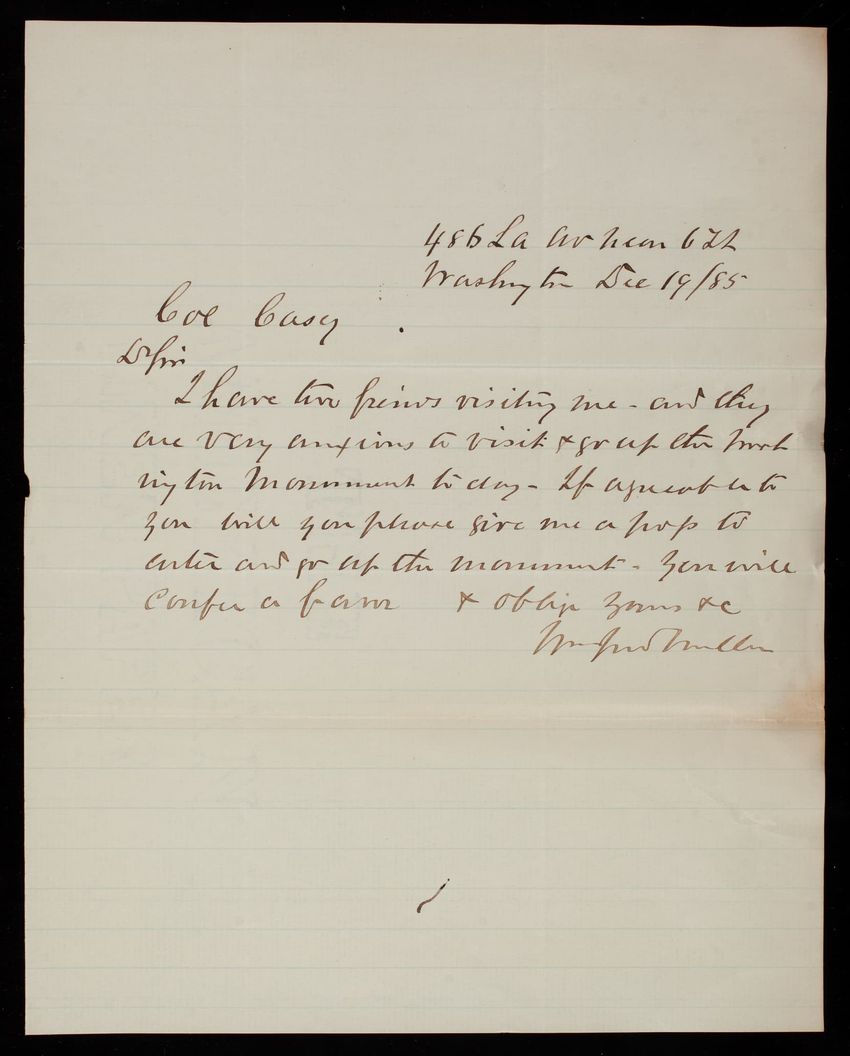 486 La Av near 6th
Washington Dec 19/85
Col Casey
D Sir
I have two friends visiting me - and they
are very anxious to visit & go up the Wash
ington Monument to day - If agreeable to
you will you please give me a pass to
enter and go up the monument - You will
confer a favor & oblige yours &c
Wm